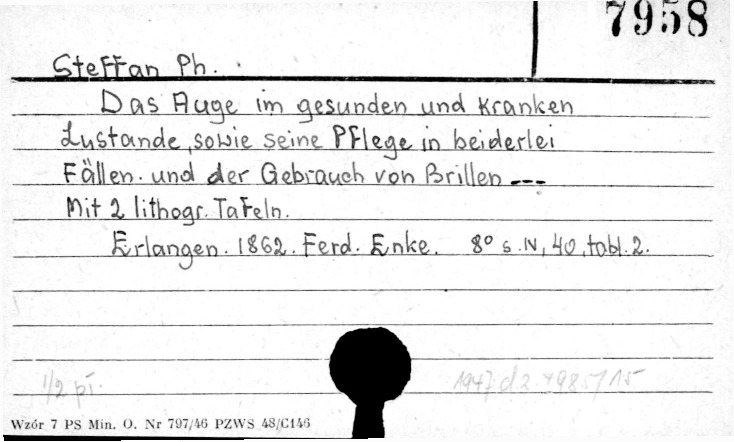 7958
Steffan Ph.
Das Auge im gesunden und kranken
Zustande, sowie seine Pflege in beiderlei
Fällen. und der Gebrauch von Brillen ---
Mit 2 lithogr. Tafeln.
Erlangen. 1862. Ferd. Enke. 8° s. IV, 40, tabl. 2.
1/2 pł.
1947 d z
Wzór 7 PS Min. O. Nr 797/46 PZWS 48/C146